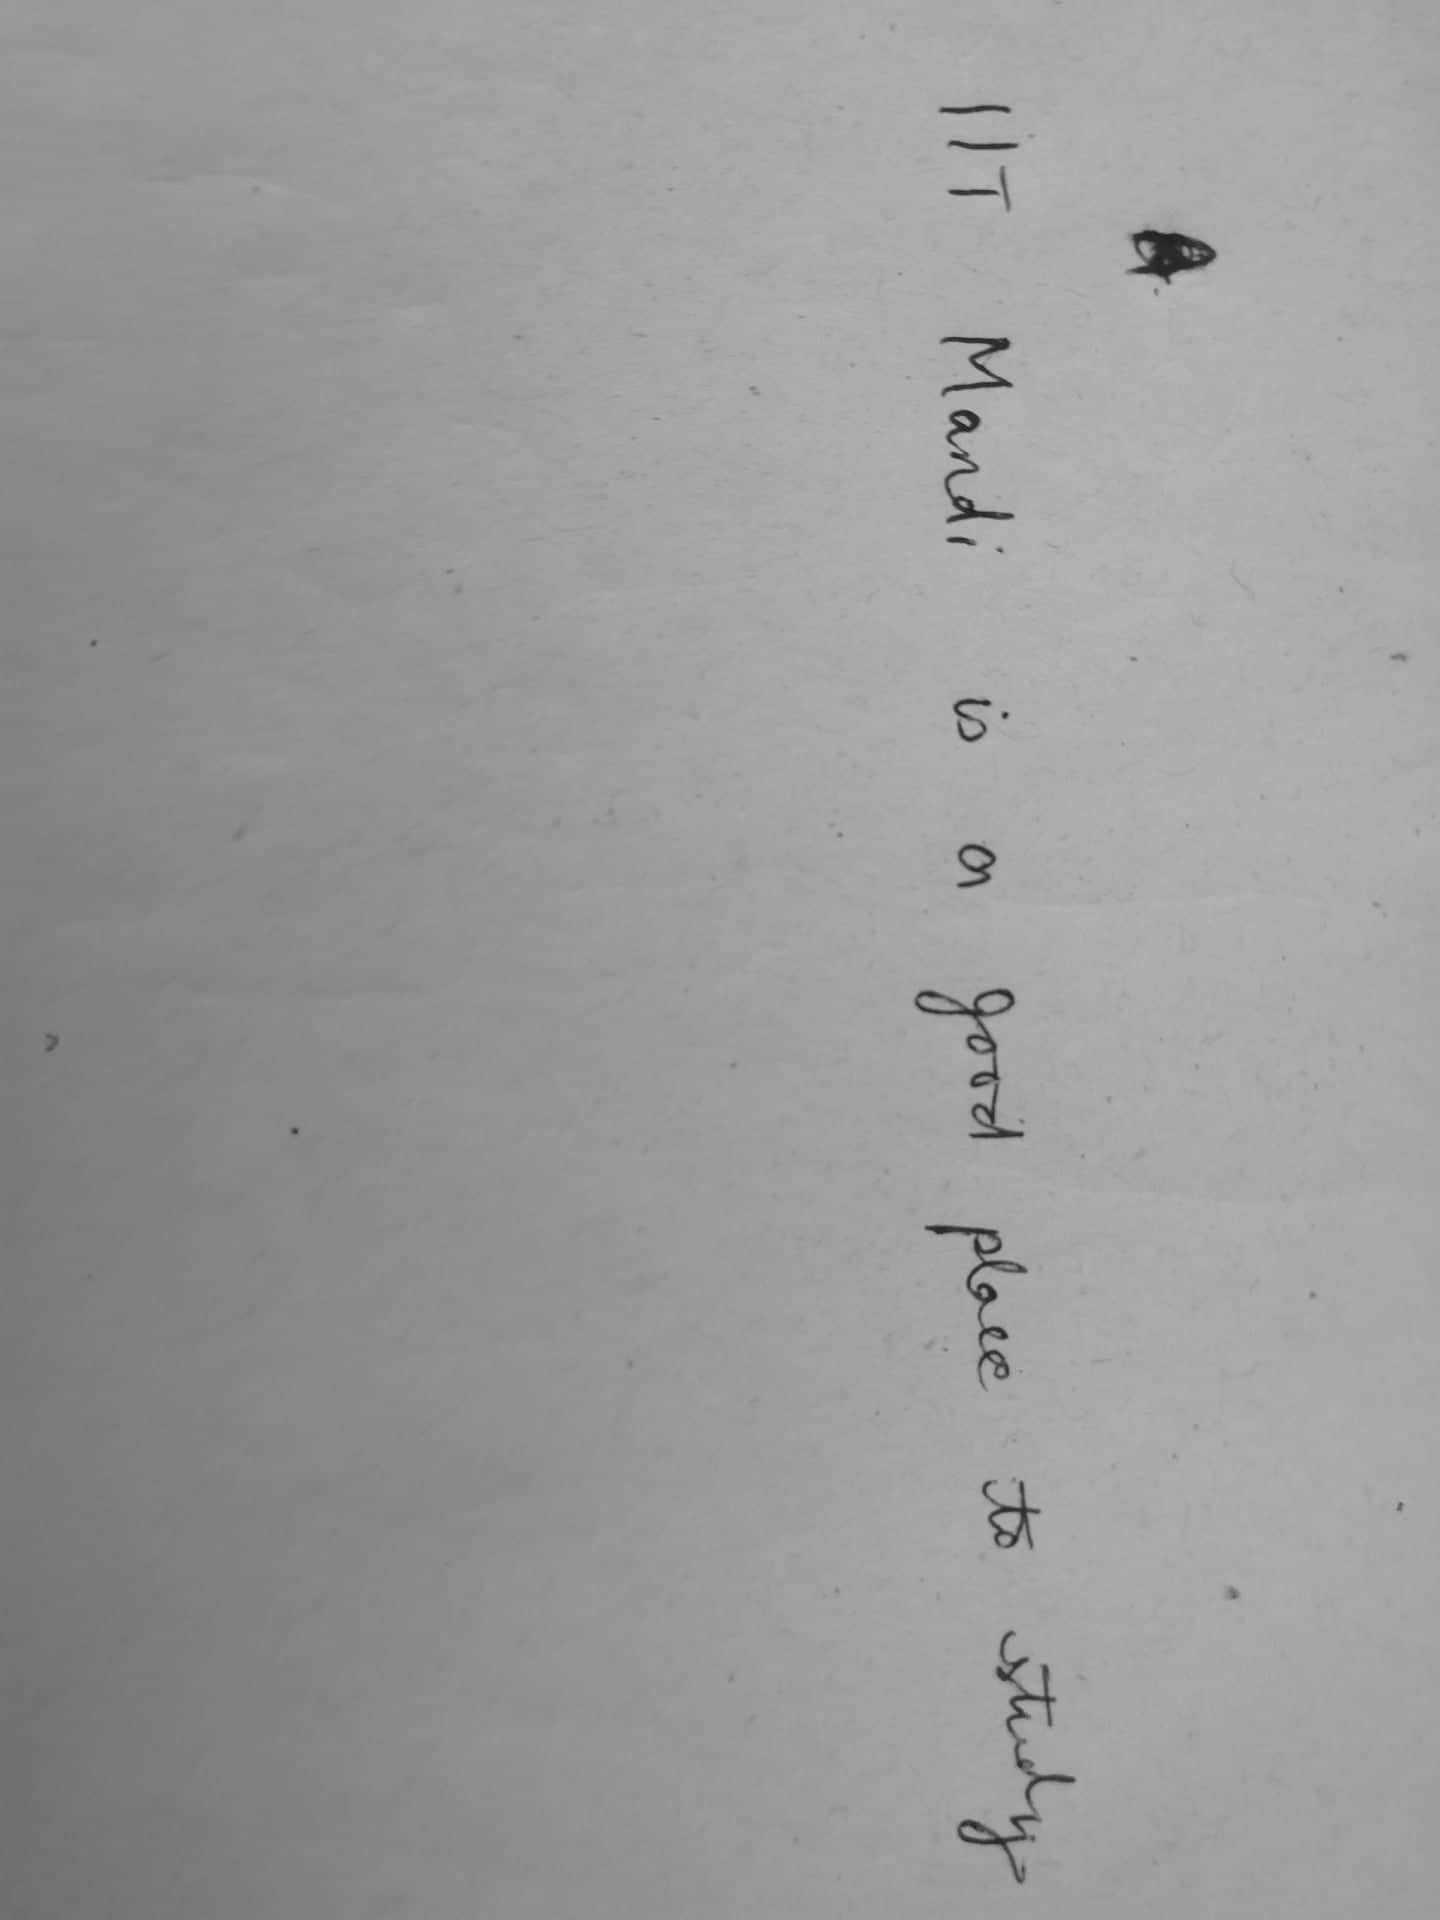 IIT Mandi is a good place to study